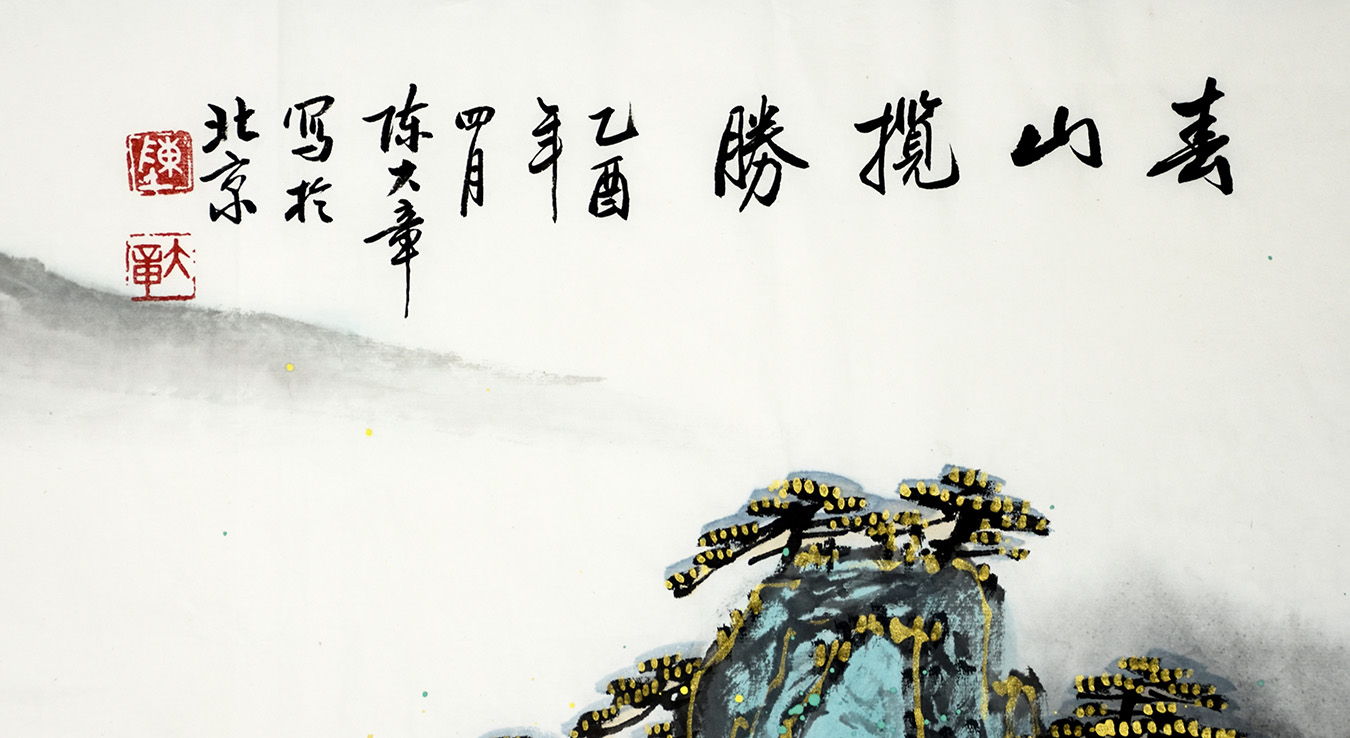 春山揽勝
乙酉
年
四月
陈大章
写於
北京
陳
大章